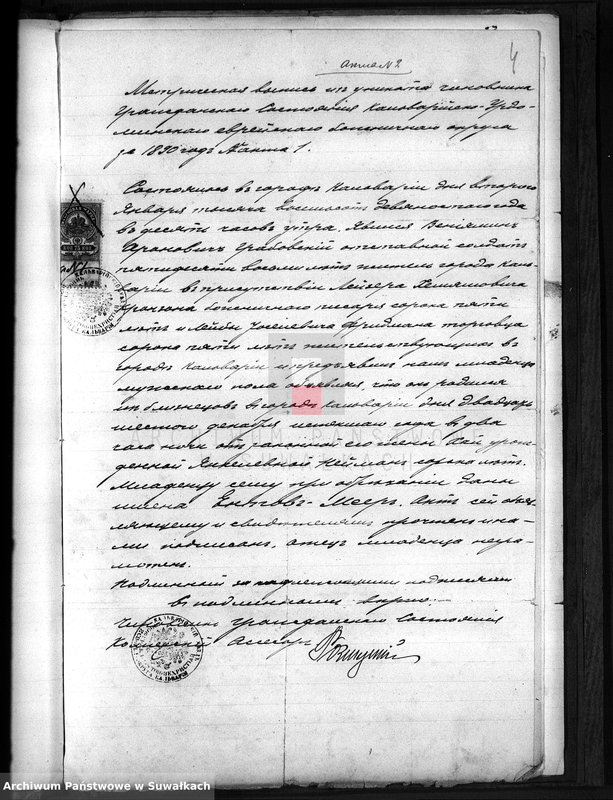 Актъ №2
4
Метрическая выпись изъ уника́та чиновника
Гражданскаго Состоянія Кальварійско-Урдо-
минскаго еврейскаго божничнаго округа
за 1890 годъ №акта 1.
Состоялось въ городѣ Кальваріи дня второго
Января тысяча восемьсотъ девяностаго года
въ десять часовъ утра. Явился Веніяминъ
Ароновичъ Грабовскій отставной солдатъ
пятидесяти восьми лѣтъ житель города Каль-
варіи въ присутствіи Лейзера
божничнаго писаря сорока пяти
лѣтъ и Лейбы Фридмана торговца
сорока пяти лѣтъ жительствующихъ въ
городѣ Кальваріи и предъявилъ намъ младенца
мужескаго пола объявляя что онъ родился
изъ близнецовъ въ городѣ Кальваріи дня двадцать
шестого декабря истекшаго года въ два
часа ночи отъ законной его жены Хаи урож-
денной Янкелевной Нейманъ сорока лѣтъ.
Младенцу сему при обрѣзаніи даны
имена Мееръ. Актъ сей объя-
вляющему и свидѣтелямъ прочтенъ и на-
ми подписанъ, отецъ младенца негра-
мотенъ.
Подлинный за надлежащими подписями
съ подлиннымъ вѣрно:
Чиновникъ гражданскаго состоянія
Ассесоръ
Archiwum Państwowe w Suwałkach